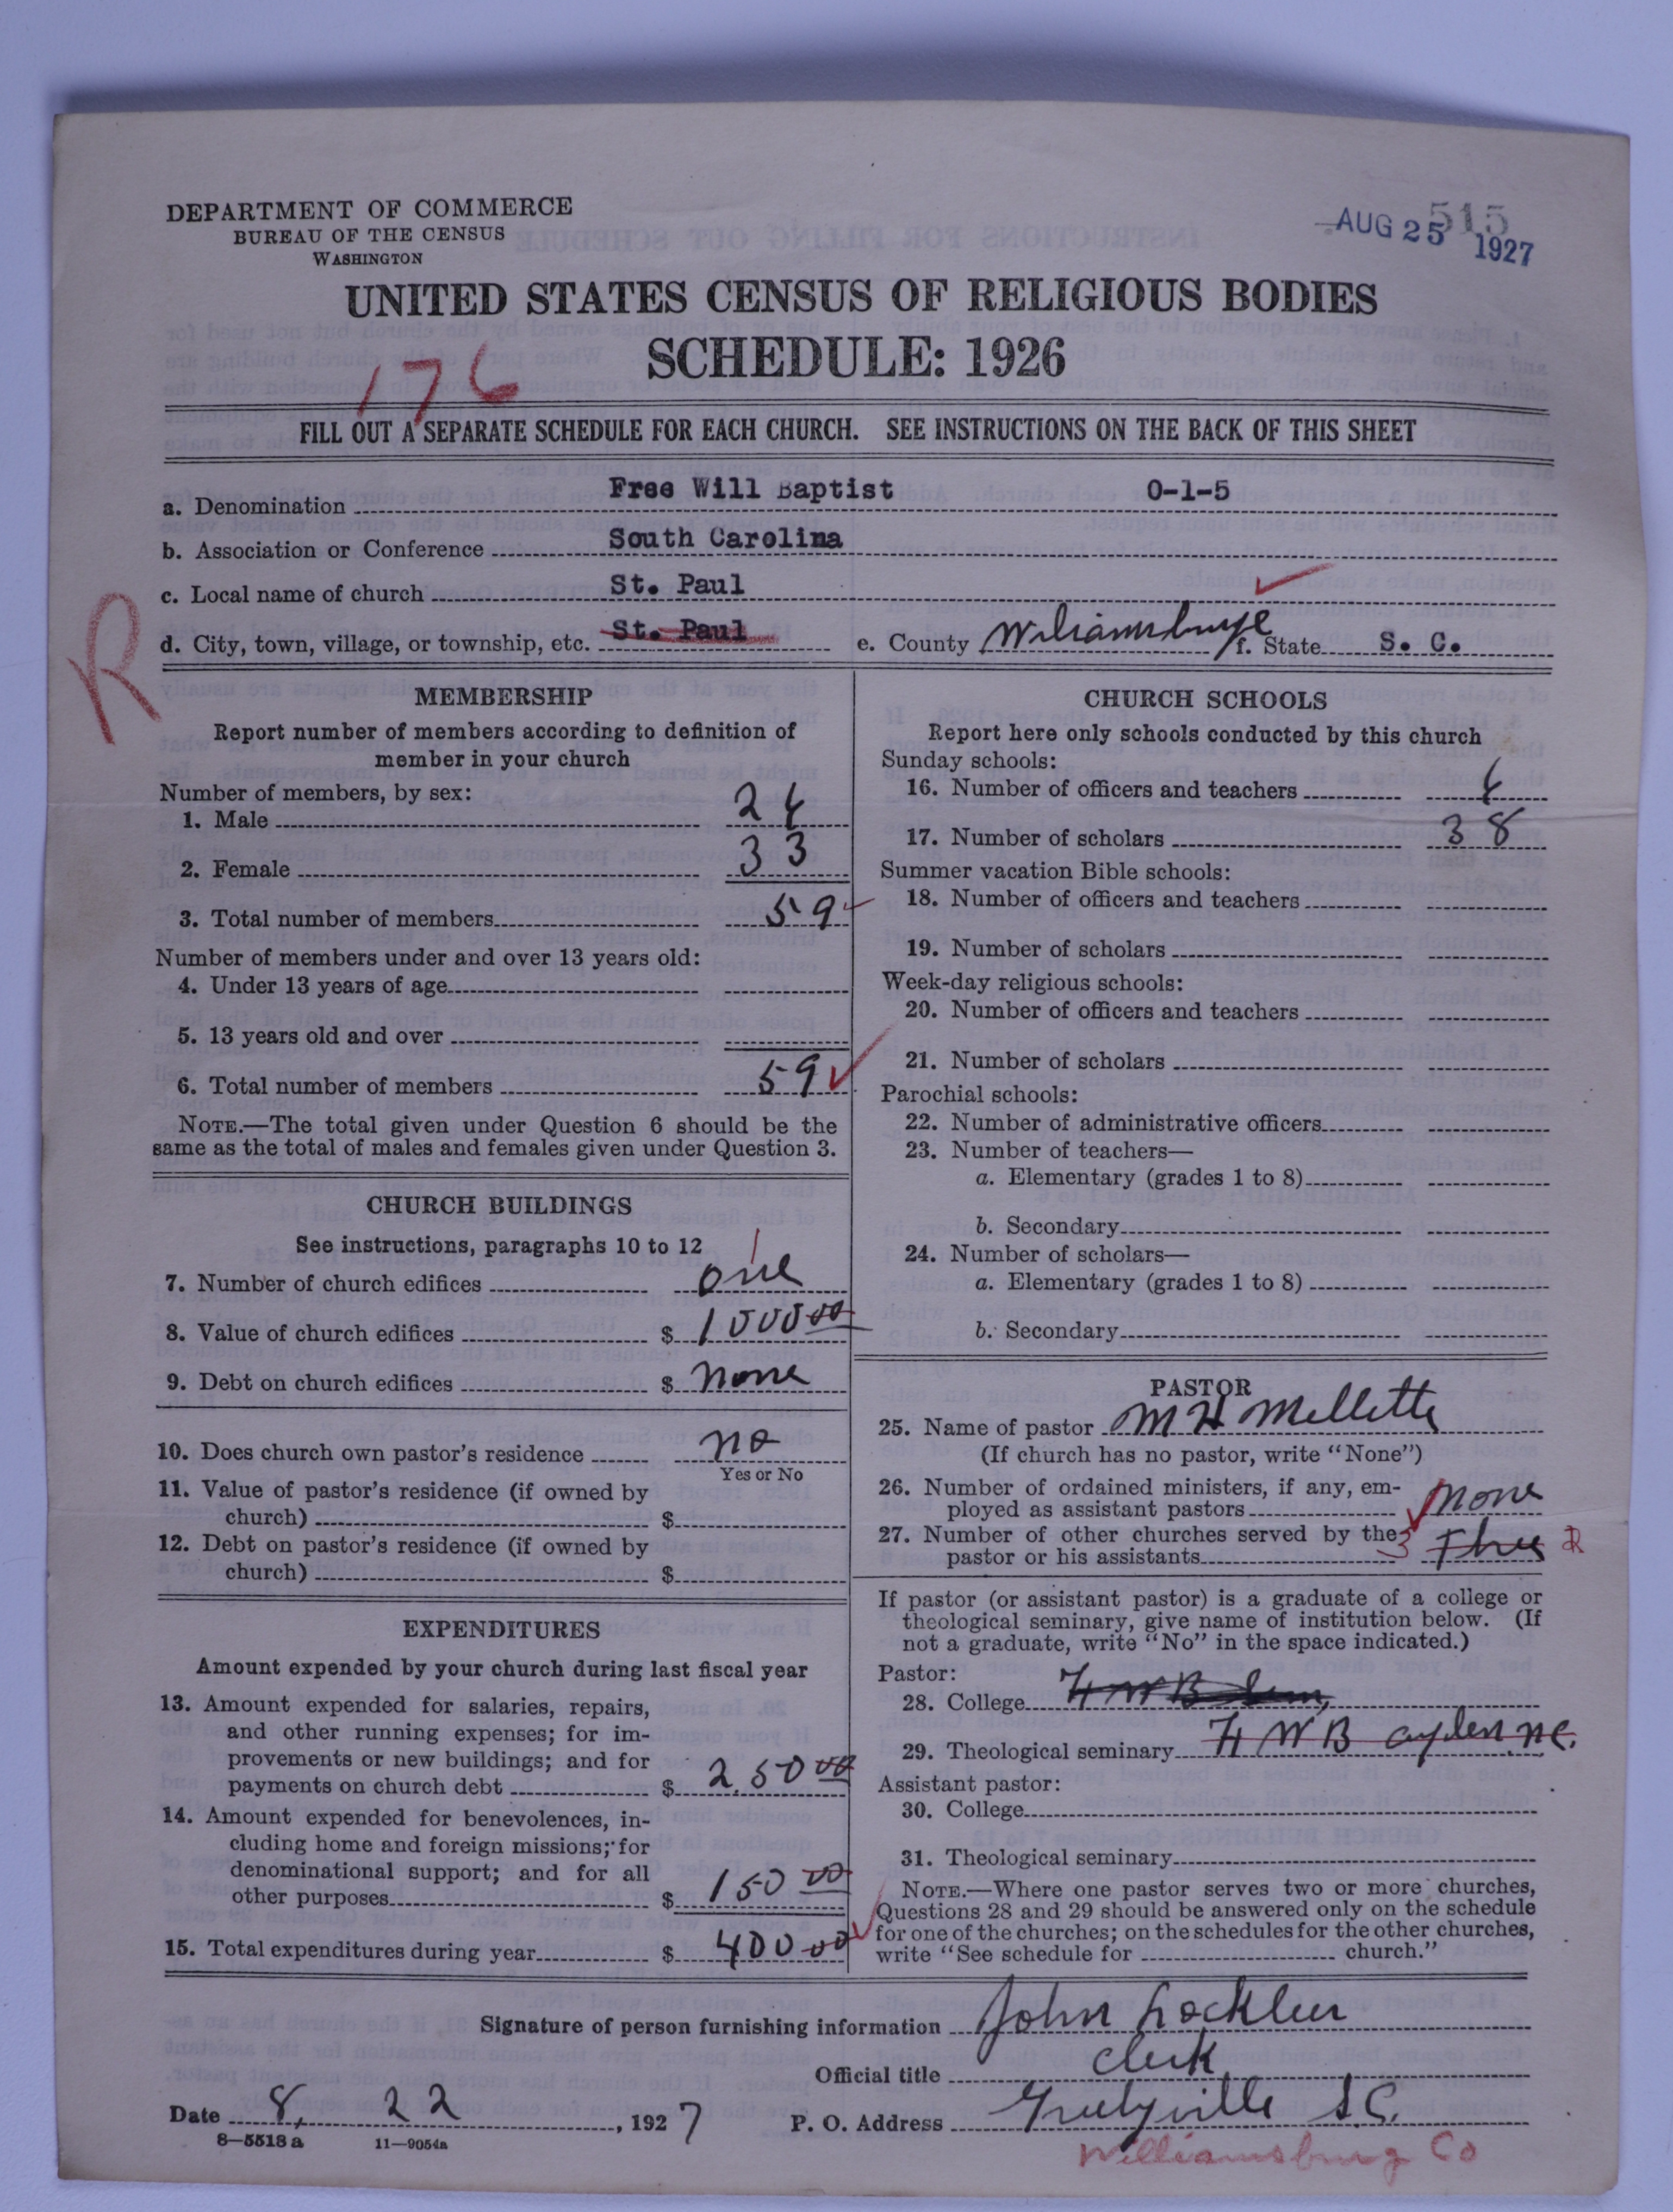 DEPARTMENT OF COMMERCE
BUREAU OF THE CENSUS
WASHINGTON
515
AUG 25 1927
UNITED STATES CENSUS OF RELIGIOUS BODIES
SCHEDULE: 1926
176
FILL OUT A SEPARATE SCHEDULE FOR EACH CHURCH. SEE INSTRUCTIONS ON THE BACK OF THIS SHEET
a. Denomination Free Will Baptist 0-1-5
b. Association or Conference South Carolina
c. Local name of church St. Paul
d. City, town, village, or township, etc. St. Paul e. County f. State S. C.
R
MEMBERSHIP
Report number of members according to definition of
member in your church
Number of members, by sex:
1. Male 26
2. Female 33
3. Total number of members 59
Number of members under and over 13 years old:
4. Under 13 years of age
5. 13 years old and over
6. Total number of members 59
NOTE.—The total given under Question 6 should be the
same as the total of males and females given under Question 3.
CHURCH BUILDINGS
See instructions, paragraphs 10 to 12
1
7. Number of church edifices one
8. Value of church edifices $ 1000 00
9. Debt on church edifices $ none
10. Does church own pastor's residence no
Yes or No
11. Value of pastor's residence (if owned by
church) $
12. Debt on pastor's residence (if owned by
church) $
EXPENDITURES
Amount expended by your church during last fiscal year
13. Amount expended for salaries, repairs,
and other running expenses; for im-
provements or new buildings; and for
payments on church debt $ 250 00
14. Amount expended for benevolences, in-
cluding home and foreign missions; for
denominational support; and for all
other purposes $ 150 00
15. Total expenditures during year $ 400 00
CHURCH SCHOOLS
Report here only schools conducted by this church
Sunday schools:
16. Number of officers and teachers 6
17. Number of scholars 38
Summer vacation Bible schools:
18. Number of officers and teachers
19. Number of scholars
Week-day religious schools:
20. Number of officers and teachers
21. Number of scholars
Parochial schools:
22. Number of administrative officers
23. Number of teachers—
a. Elementary (grades 1 to 8)
b. Secondary
24. Number of scholars—
a. Elementary (grades 1 to 8)
b. Secondary
PASTOR
25. Name of pastor M H Mellette
(If church has no pastor, write "None")
26. Number of ordained ministers, if any, em-
ployed as assistant pastors None
27. Number of other churches served by the
pastor or his assistants 3 Three R
If pastor (or assistant pastor) is a graduate of a college or
theological seminary, give name of institution below. (If
not a graduate, write "No" in the space indicated.)
Pastor:
28. College F W B Sem,
29. Theological seminary F W B Ayden N.C.
Assistant pastor:
30. College
31. Theological seminary
NOTE.—Where one pastor serves two or more churches,
Questions 28 and 29 should be answered only on the schedule
for one of the churches; on the schedules for the other churches,
write "See schedule for church."
Signature of person furnishing information John Locklier
Official title Clerk
Date 8, 22, 1927 P. O. Address Greelyville S.C.
8—5518 a 11—9054a
Williamsburg Co